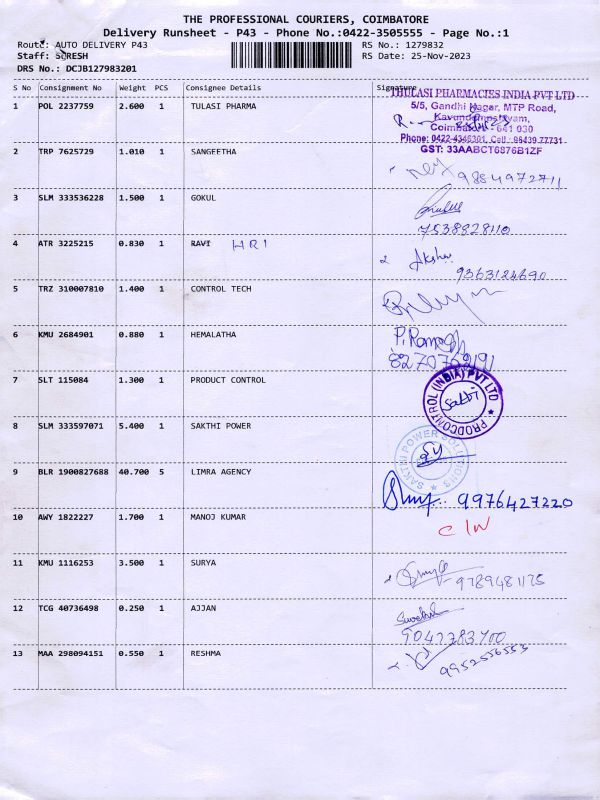 THE PROFESSIONAL COURIERS, COIMBATORE
Delivery Runsheet - P43 - Phone No.:0422-3505555 - Page No.:1
Route: AUTO DELIVERY P43
RS No.: 1279832
Staff: SURESH
RS Date: 25-Nov-2023
DRS No.: DCJB127983201
S No Consignment No Weight PCS Consignee Details Signature
THULASI PHARMACIES INDIA PVT LTD
1 POL 2237759 2.600 1 TULASI PHARMA
5/5, Gandhi Nagar, MTP Road,
Coimbatore - 641 030
Phone: 0422-4346301, Cell: 98439 77731
GST: 33AABCT6876B1ZF
2 TRP 7625729 1.010 1 SANGEETHA
9884972711
3 SLM 333536228 1.500 1 GOKUL
7538828110
4 ATR 3225215 0.830 1 RAVI HRI
Aksha
9363124690
5 TRZ 310007810 1.400 1 CONTROL TECH
6 KMU 2684901 0.880 1 HEMALATHA
8270762191
7 SLT 115084 1.300 1 PRODUCT CONTROL
PRODCONTROL (INDIA) PVT LTD
Sakthi
8 SLM 333597071 5.400 1 SAKTHI POWER
SAKTHI POWER SOLUTIONS
9 BLR 1900827688 40.700 5 LIMRA AGENCY
9976427220
10 AWY 1822227 1.700 1 MANOJ KUMAR
C/W
11 KMU 1116253 3.500 1 SURYA
9789481175
12 TCG 40736498 0.250 1 AJJAN
9042783700
13 MAA 298094151 0.550 1 RESHMA
9952556553